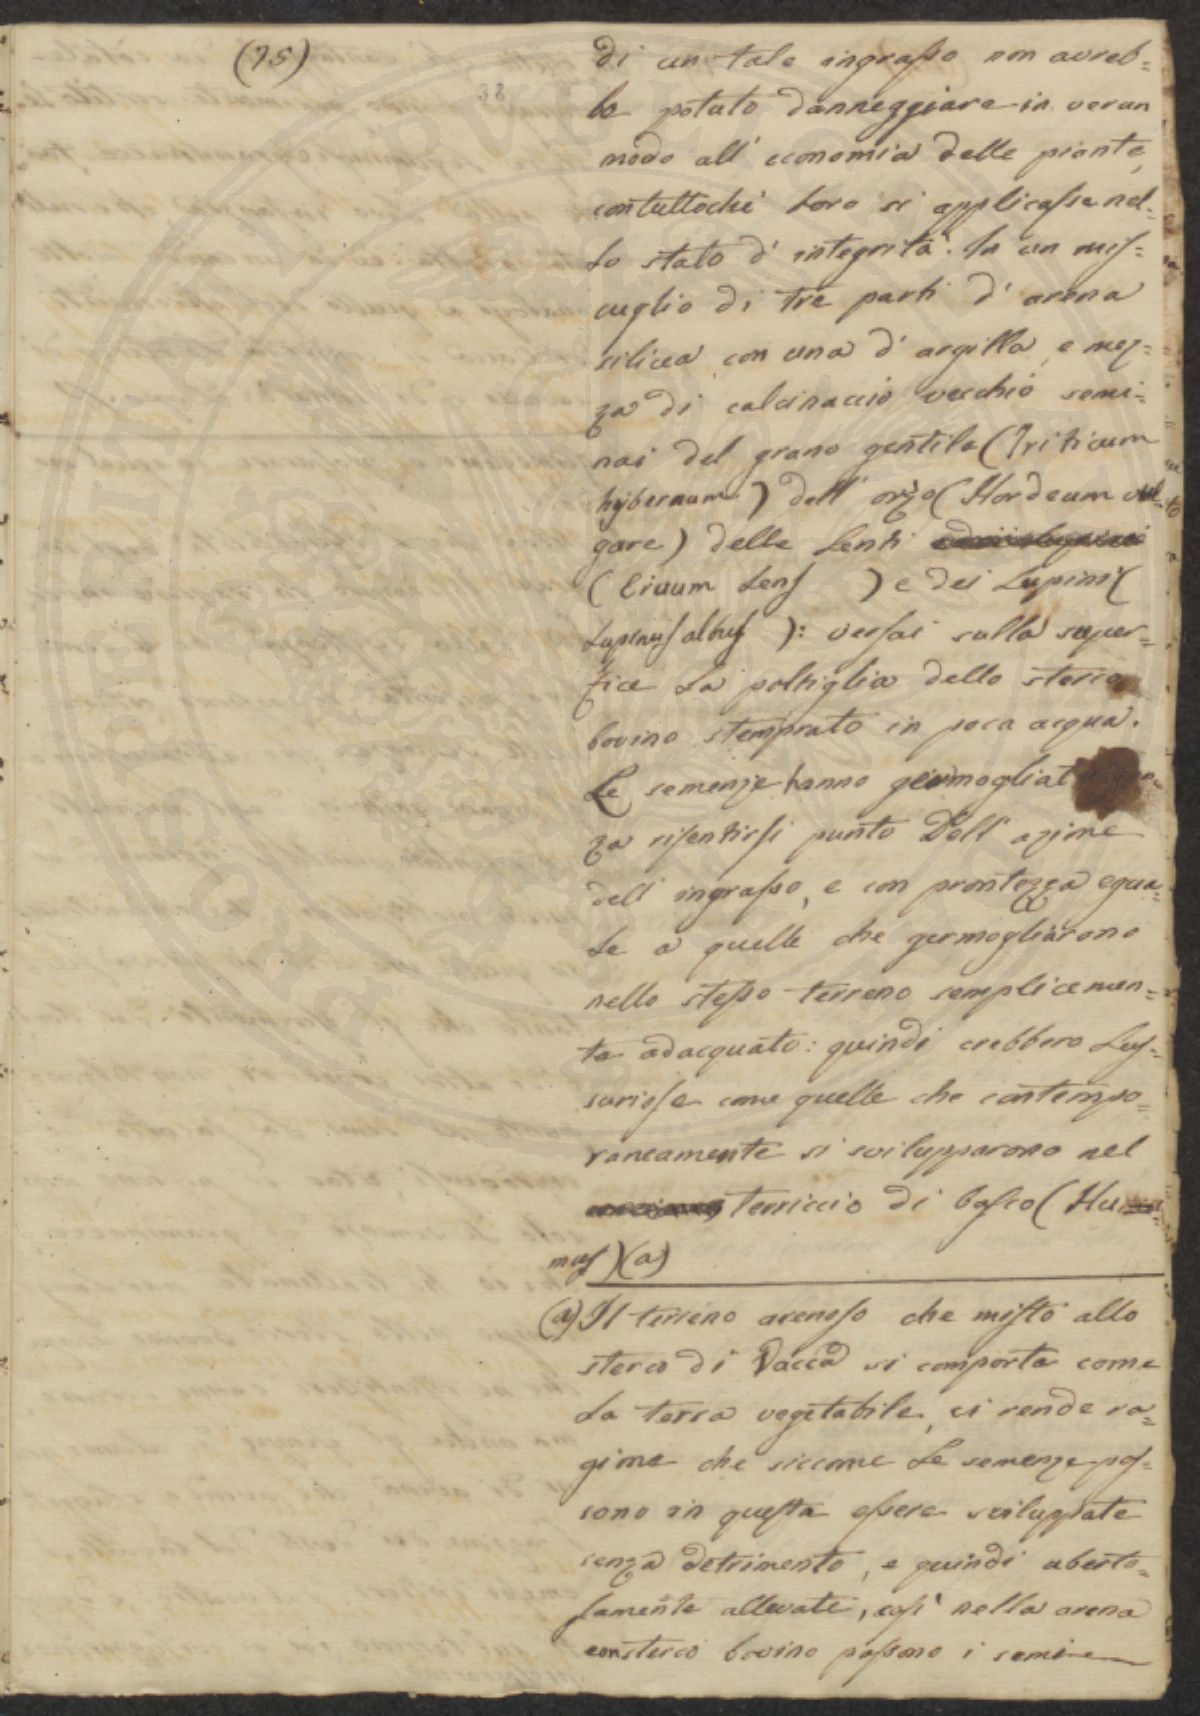 (75)
di un tale ingrasso non avreb=
be potuto danneggiare in verun
modo all' economia delle piante,
contuttochè loro si applicasse nel=
lo stato d' integrità. In un mis=
cuglio di tre parti d' arena
silicea con una d' argilla, e mez=
za di calcinaccio vecchio semi=
nai del grano gentile (Triticum
hybernum) dell' orzo (Hordeum vul=
gare) delle Lenti
(Ervum Lens ) e dei Lupini (
Lupinus albus ): versai sulla super=
fice la poltiglia dello sterco
bovino stemprato in poca acqua.
Le semenze hanno germogliat
za risentirsi punto dell' azime
dell' ingrasso, e con prontezza egua=
le a quelle che germogliarono
nello stesso terreno semplicemen=
te adacquato: quindi crebbero lus=
suriose come quelle che contempo=
raneamente si svilupparono nel
terriccio di bosco (Hu=
mus) (a)
(a) Il terreno arenoso che misto allo
sterco di Vacca si comporta come
la terra vegetabile, ci rende ra=
gime che siccome le semenze pos=
sono in questa essere sviluppate
senza detrimento, e quindi uberto=
samente allevate, così nella arena
consterco bovino possono i semi